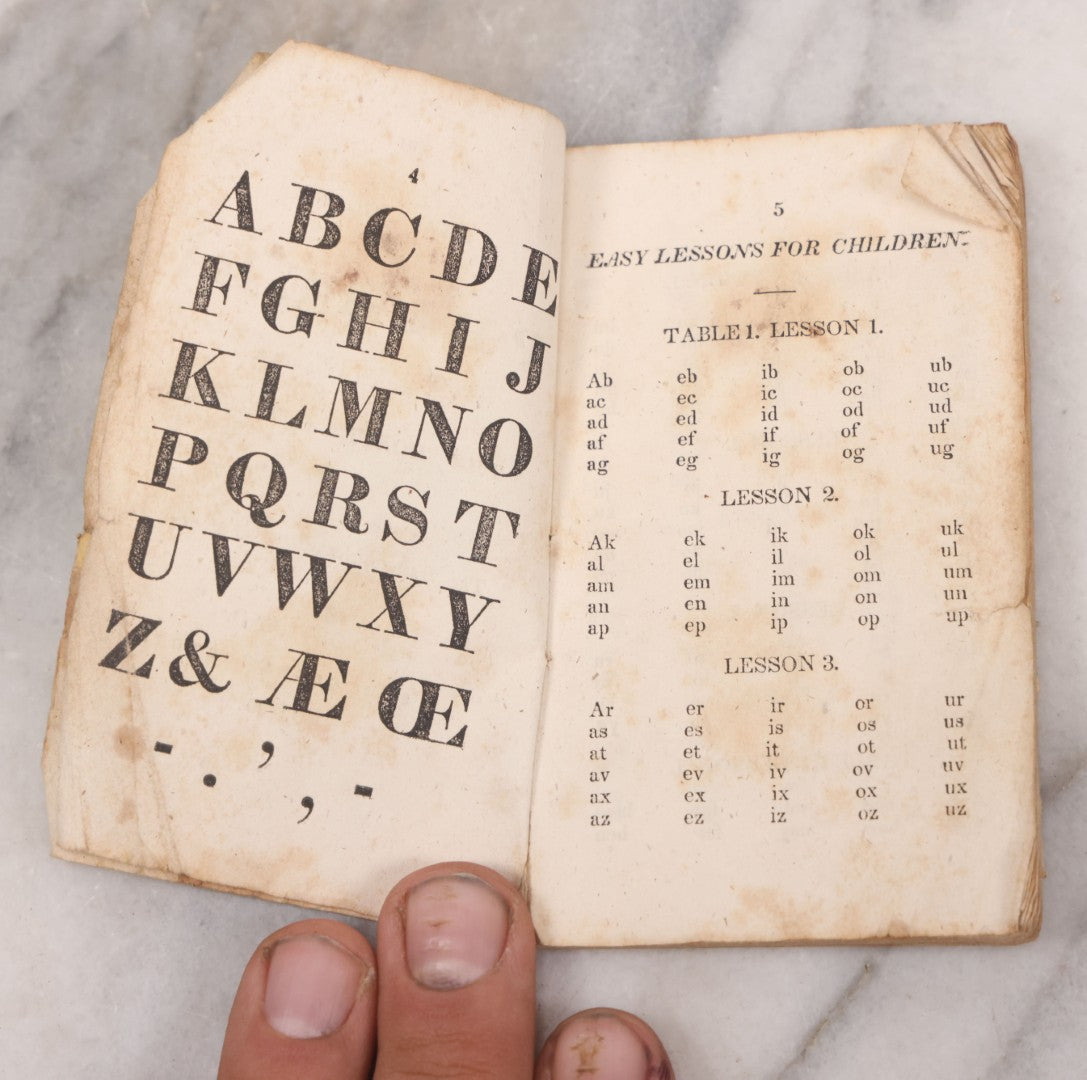 4
A B C D E
F G H I J
K L M N O
P Q R S T
U V W X Y
Z & Æ Œ
- . ’ , -
5
EASY LESSONS FOR CHILDREN.
TABLE 1. LESSON 1.
Ab eb ib ob ub
ac ec ic oc uc
ad ed id od ud
af ef if of uf
ag eg ig og ug
LESSON 2.
Ak ek ik ok uk
al el il ol ul
am em im om um
an en in on un
ap ep ip op up
LESSON 3.
Ar er ir or ur
as es is os us
at et it ot ut
av ev iv ov uv
ax ex ix ox ux
az ez iz oz uz